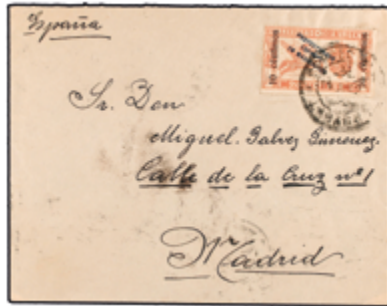 España
Sr. Don
Miguel Galvez Gimenez,
Calle de la Cruz nº 1
Madrid